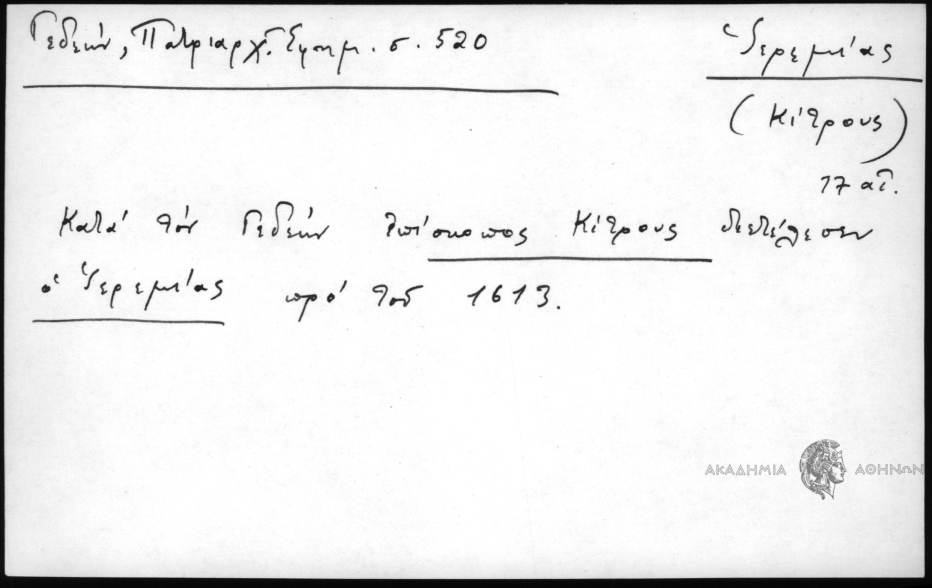 Γεδεών, Πατριαρχ. Εφημ. σ. 520
Ἱερεμίας
(Κίτρους)
17 αἰ.
Κατά τόν Γεδεών ἐπίσκοπος Κίτρους διετέλεσεν
ὁ Ἱερεμίας πρό τοῦ 1613.
ΑΚΑΔΗΜΙΑ ΑΘΗΝΩΝ